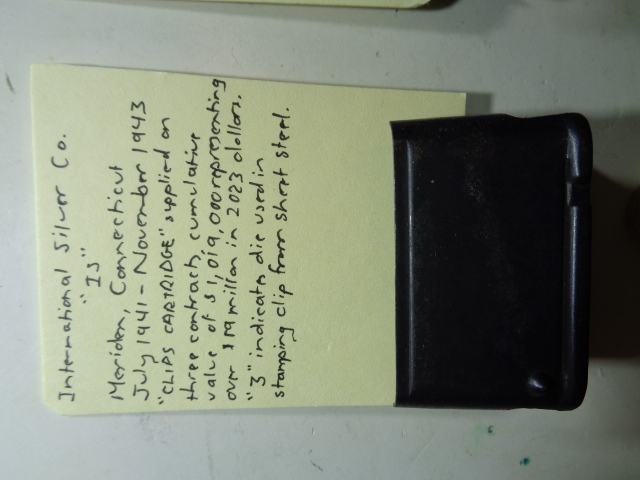 International Silver Co.
"IS"
Meriden, Connecticut
July 1941 - November 1943
"CLIPS CARTRIDGE" supplied on
three contracts, cumulative
value of $1,019,000 representing
over $19 million in 2023 dollars.
"3" indicates die used in
stamping clip from sheet steel.